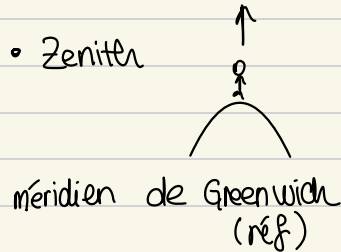 • Zenith
méridien de Greenwich
(réf)